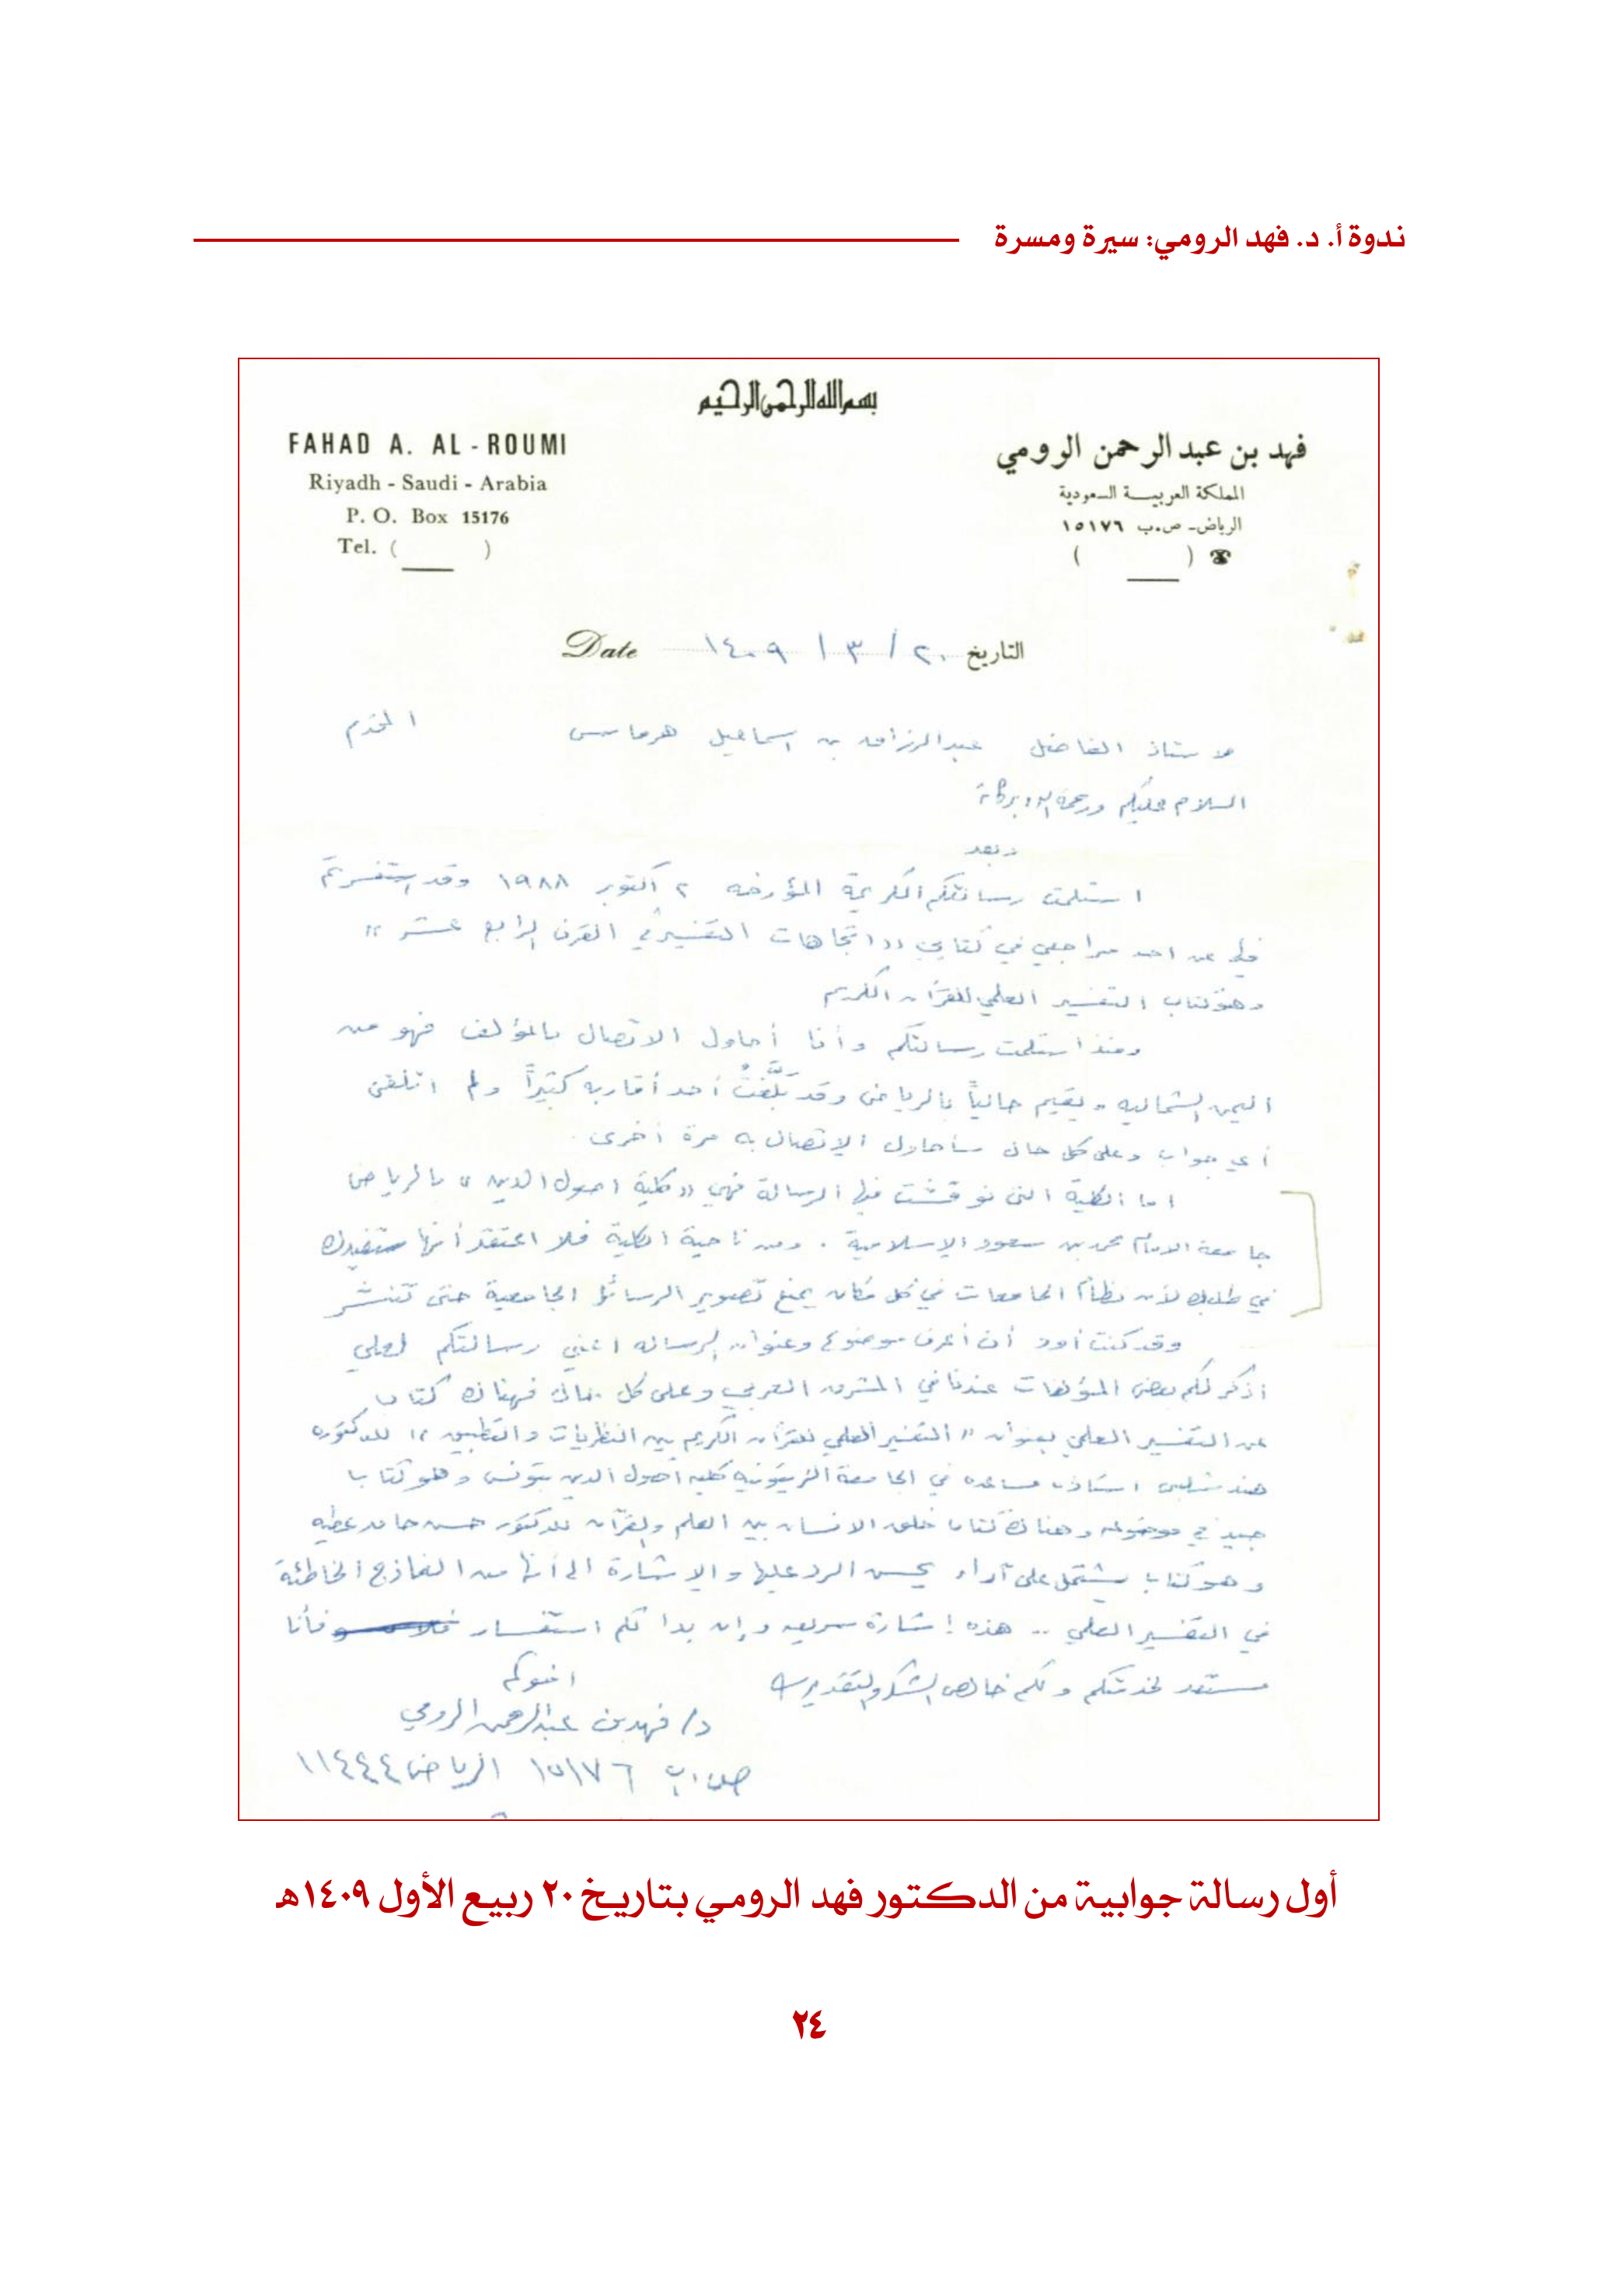 ندوة أ. د. فهد الرومي: سيرة ومسرة
بسم الله الرحمن الرحيم
FAHAD A. AL - ROUMI
Riyadh - Saudi - Arabia
P. O. Box 15176
Tel. ( )
فهد بن عبد الرحمن الرومي
المملكة العربية السعودية
الرياض - ص.ب ١٥١٧٦
☎ ( )
التاريخ ٢٠ / ٣ / ١٤٠٩ Date
الاستاذ الفاضل عبدالرزاق بن اسماعيل هرماس المحترم
السلام عليكم ورحمة الله وبركاته
وبعد
استلمت رسالتكم الكريمة المؤرخه ٢ أكتوبر ١٩٨٨ وقد استفسرتم
فيها عن احد مراجعي في كتابي «اتجاهات التفسير في القرن الرابع عشر»
وهو كتاب التفسير العلمي للقرآن الكريم
ومنذ استلمت رسالتكم وأنا أحاول الاتصال بالمؤلف فهو من
اليمن الشماليه ويقيم حالياً بالرياض وقد بلَّغتُ أحد أقاربه كثيراً ولم اتلقى
أي جواب وعلى كل حال سأحاول الإتصال به مرة أخرى.
اما الكلية التي نوقشت فيها الرسالة فهي «كلية اصول الدين» بالرياض
جامعة الامام محمد بن سعود الإسلامية. ومن ناحية الكلية فلا اعتقد أنها ستفيدك
في طلبك لأن نظام الجامعات في كل مكان يمنع تصوير الرسائل الجامعية حتى تنشر
وقد كنت أود أن أعرف موضوع وعنوان الرساله اعني رسالتكم لعلي
أذكر لكم بعض المؤلفات عندنا في المشرق العربي وعلى كل حال فهناك كتاب
عن التفسير العلمي بعنوان «التفسير العلمي للقرآن الكريم بين النظريات والتطبيق» للدكتوره
هند شلبي استاذه مساعده في الجامعة الزيتونيه كليه أصول الدين بتونس وهو كتاب
جيد في موضوعه وهناك كتاب خلق الانسان بين العلم والقرآن للدكتور حسن حامد عطيه
وهو كتاب يشتمل على آراء يحسن الرد عليها والإشارة إلى أنها من النماذج الخاطئة
في التفسير العلمي .. هذه إشارة سريعه وإن بدا لكم استفسار فأنا
مستعد لخدمتكم ولكم خالص الشكر والتقدير
اخوكم
د/ فهد بن عبدالرحمن الرومي
ص.ب ١٥١٧٦ الرياض ١١٤٤٤
أول رسالة جوابية من الدكتور فهد الرومي بتاريخ ٢٠ ربيع الأول ١٤٠٩هـ
٢٤